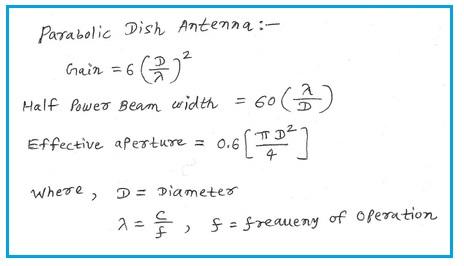 Parabolic Dish Antenna :-
Gain = 6 (D/λ)²
Half Power Beam width = 60 (λ/D)
Effective aperture = 0.6 [πD²/4]
Where, D = Diameter
λ = c/f , f = freaueny of operation